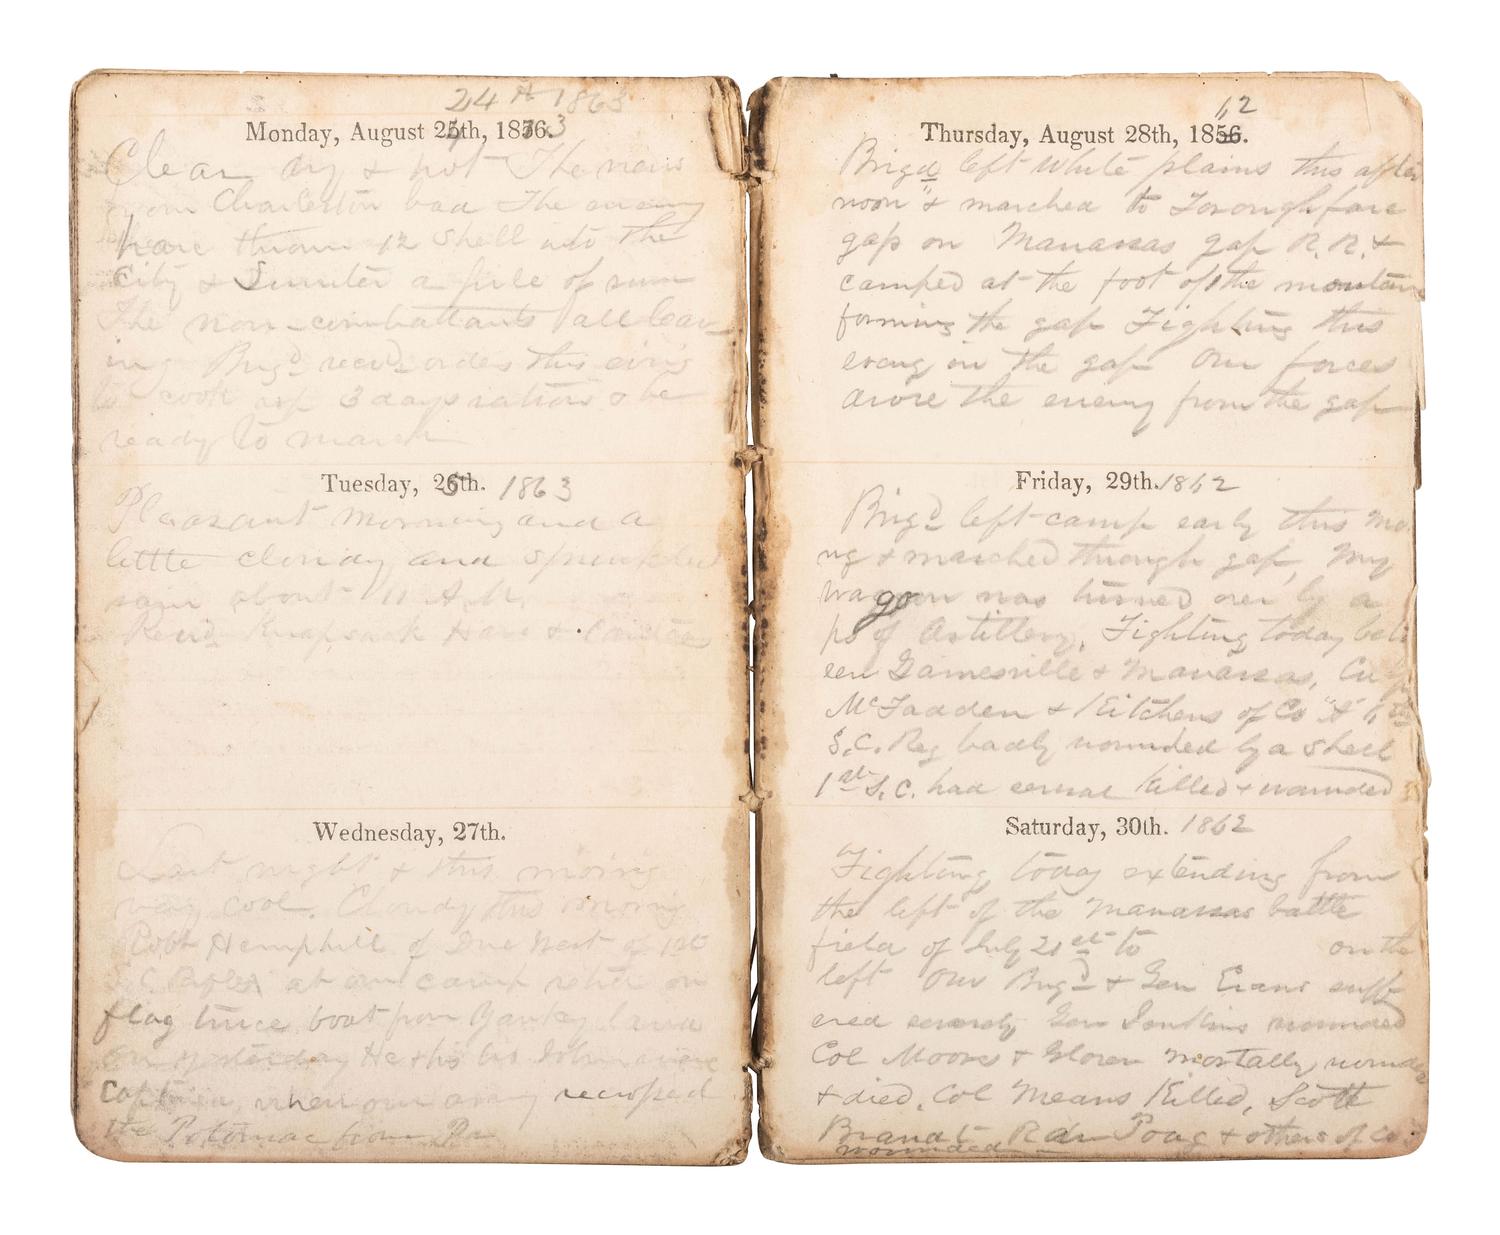 24th 1863
Monday, August 25th, 1856. 3
Clear dry & hot The news
from Charleston bad The enemy
have thrown 12 shell into the
City & Sumter a pile of ruin
The non-combattants all leav
ing Brigd recvd orders this evng
to cook up 3 days rations & be
ready to march
Tuesday, 26th. 1863
Pleasant morning and a
little cloudy and sprinkled
rain about 11 A.M.
Recvd Knapsack Hav & Canteen
Wednesday, 27th.
Last night & this morng
very cool. Cloudy this morning
Robt Hemphill of Due West of 1st
S.C. at our camp retur on
flag truce boat from Yankey land
on yesterday He & his bro John were
Capt when our army recrossed
the Potomac from Pa
62
Thursday, August 28th, 1856.
Brigd left White plains this after
noon & marched to Toroughfare
gap on Manassas gap R.R. &
camped at the foot of the mountain
forming the gap Fighting this
evang in the gap Our forces
drove the enemy from the gap
Friday, 29th. 1862
Brigd left camp early this mo
ng & marched through gap, My
wagon was turned over by a
ps of Artillery. Fighting today betw
een Gainesville & Manassas,
McFadden & Kitchens of Co "A"
S.C. Reg badly wounded by a shell
1st S.C. had several killed & wounded
Saturday, 30th. 1862
Fighting today extending from
the left of the Manassas battle
field of July 21st to on the
left Our Brigd & Gen Evans suff
ered severely Gen Jenkins wounded
Col Moore & Gloren mortally wounded
& died. Col Means Killed, Scott
Brandt Poag & others of Co
wounded